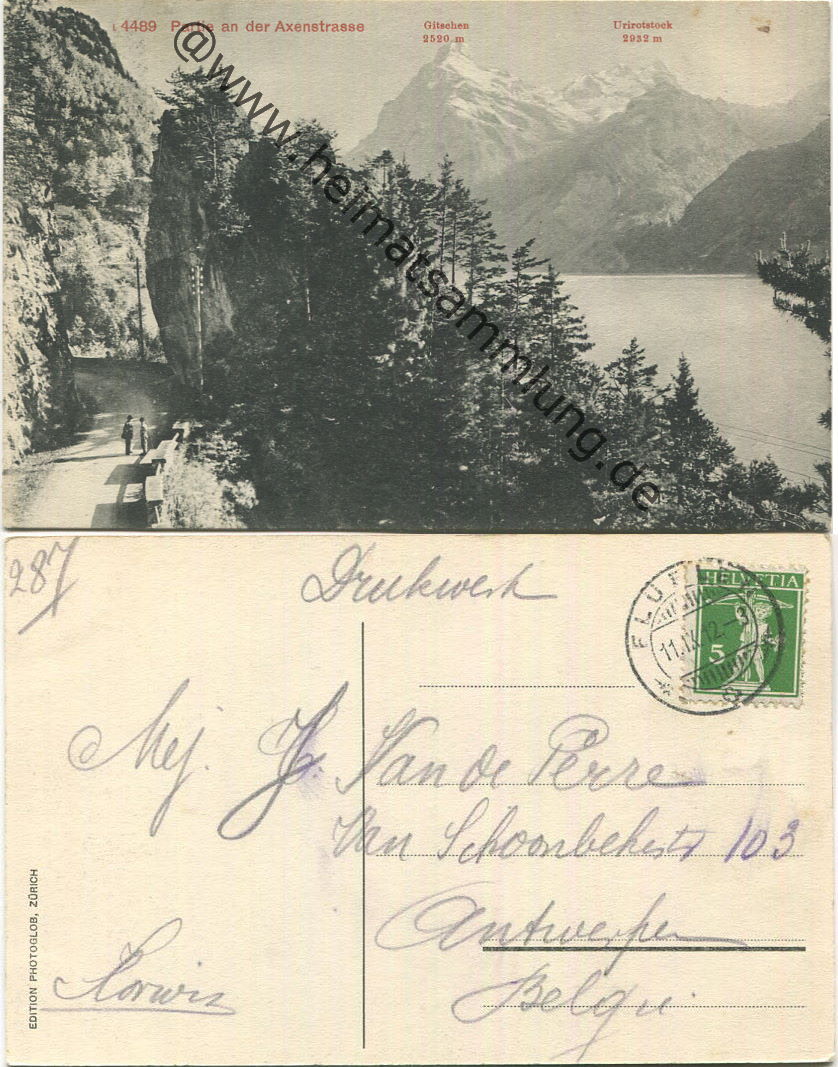 4489 Partie an der Axenstrasse
Gitschen
2520 m
Urirotstock
2932 m
@www.heimatsammlung.de
287
Drukwerk
HELVETIA
5
FLUELEN
11.IX.12.-3
Mej. J. Van de Perre
Van Schoonbekestr 103
Antwerpen
Belgie
EDITION PHOTOGLOB, ZÜRICH